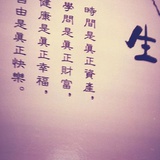 生
時間是真正資產。
學問是真正財富，
健康是真正幸福，
自由是真正快樂。